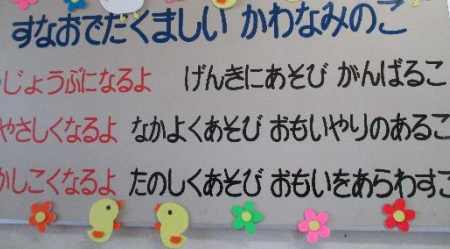 すなおでたくましい かわなみのこ
じょうぶになるよ げんきにあそび がんばるこ
やさしくなるよ なかよくあそび おもいやりのあるこ
かしこくなるよ たのしくあそび おもいをあらわすこ